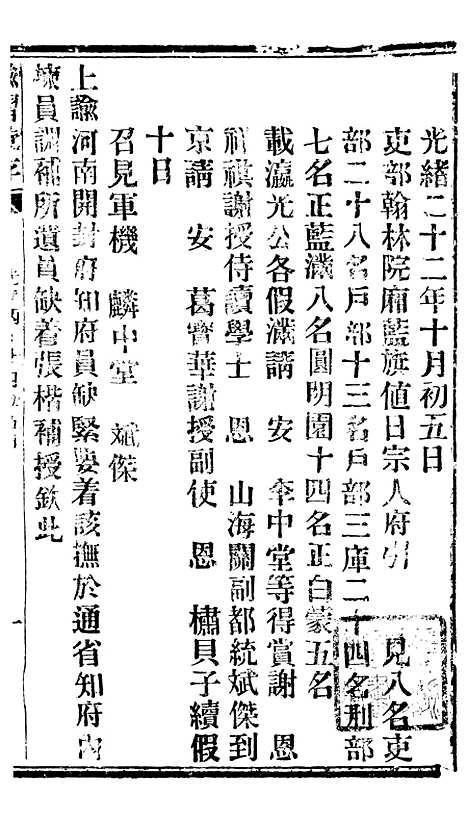 光緒二十二年十月初五日
吏部翰林院廂藍旗値日宗人府引　見八名吏
部二十八名戶部十三名戶部三庫二十四名刑部
七名正藍滿八名圓明園十四名正白蒙五名
載瀛光公各假滿請　安　李中堂等得賞謝　恩
祥祺謝授侍讀學士　恩　山海關副都統斌傑到
京請　安　葛寶華謝授副使　恩　橚貝子續假
十日
召見軍機　麟中堂　斌傑
上諭河南開封府知府員缺緊要着該撫於通省知府內
揀員調補所遺員缺着張楷補授欽此